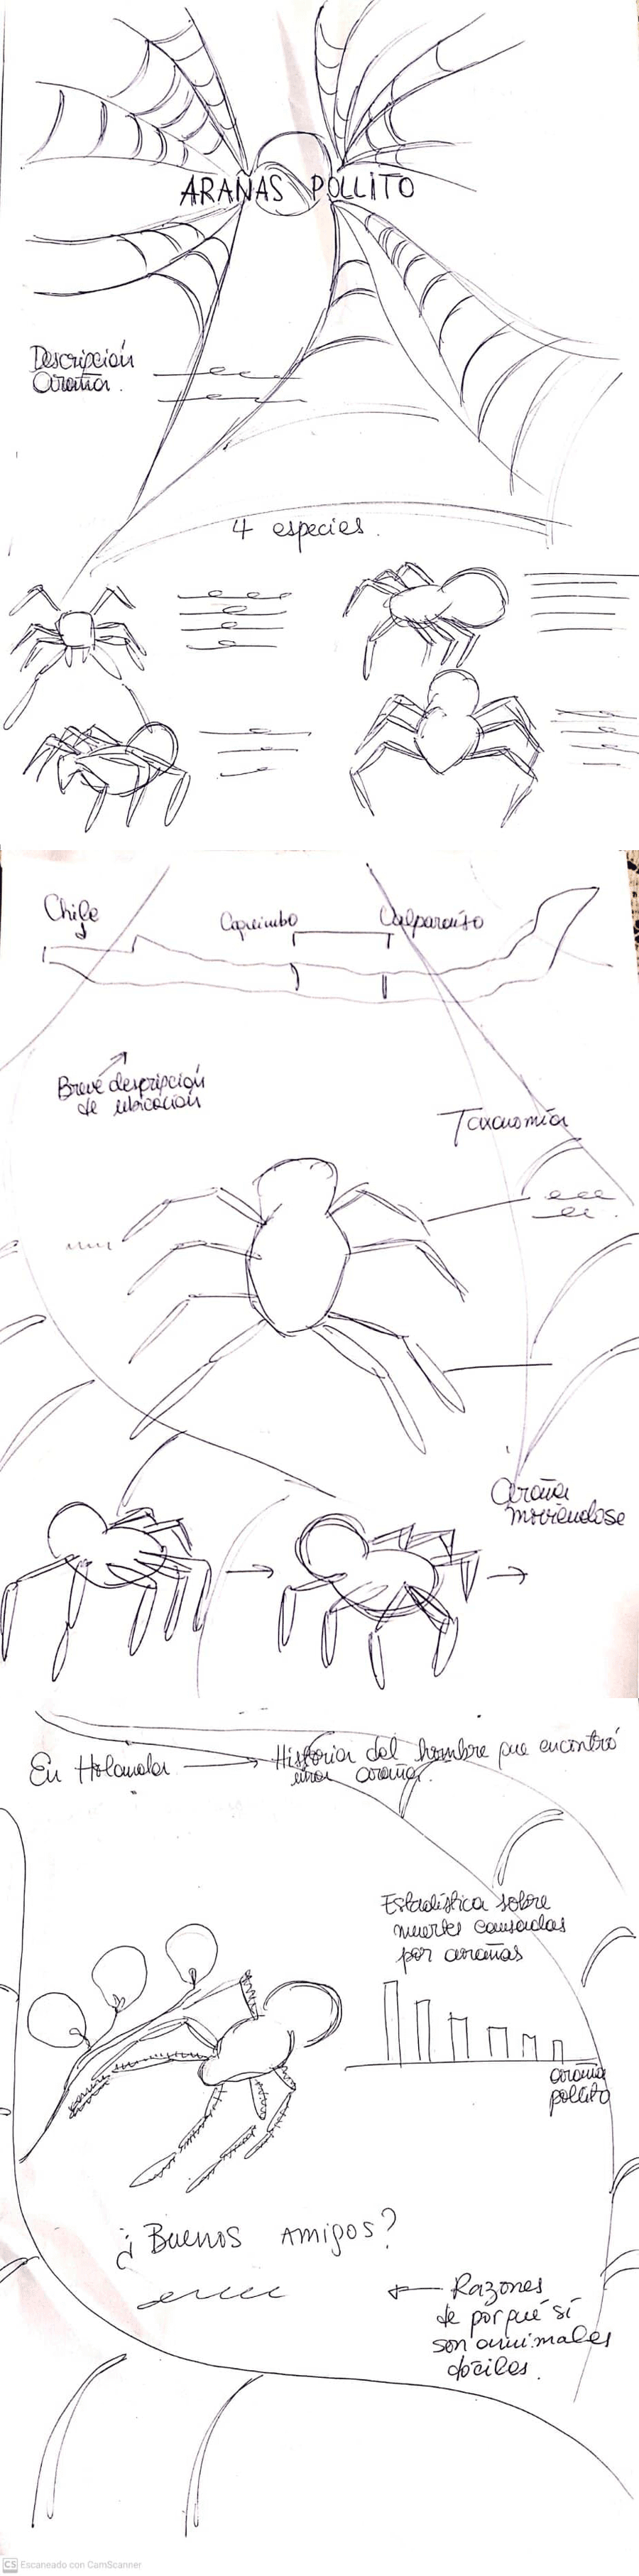 ARAÑAS POLLITO
Descripción
Araña.
4 especies.
Chile
Coquimbo
Valparaíso
Breve descripción
de ubicación
Taxonomía
Araña
moviéndose
En Holanda
Historia del hombre que encontró
una araña.
Estadística sobre
muertes causadas
por arañas
araña
pollito
¿Buenos amigos?
Razones
de porqué sí
son animales
dóciles.
CS Escaneado con CamScanner